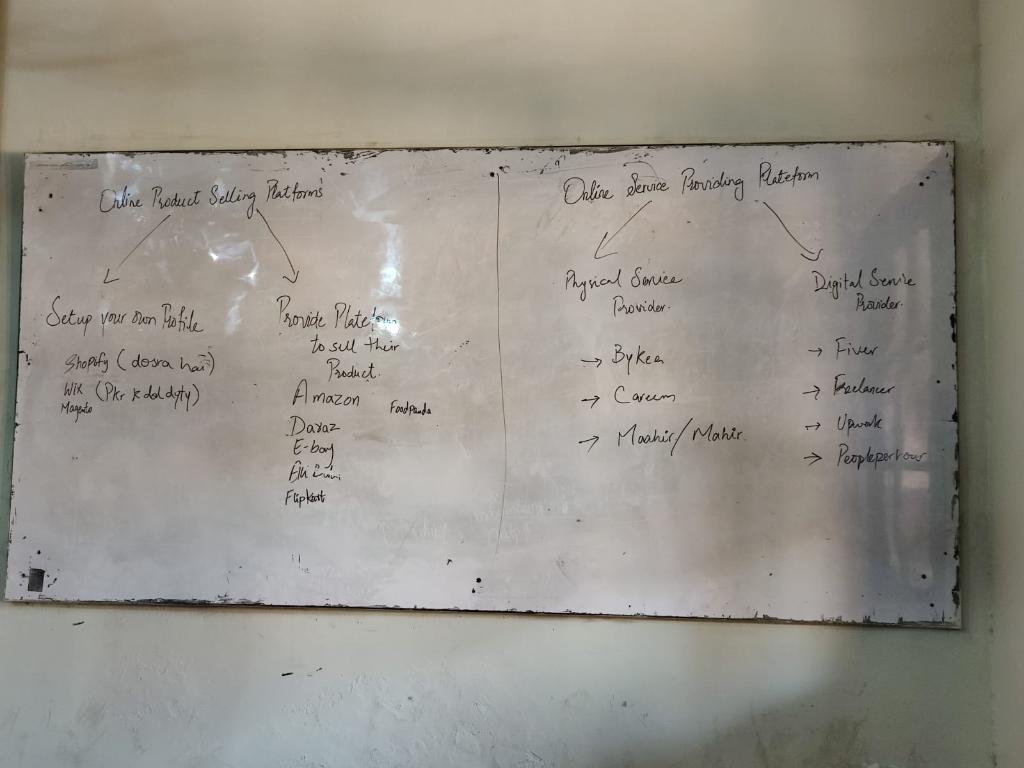 Online Product Selling Platforms
Setup your own Profile
Shopify (dosra hai)
Wix (Pkr k
Magento
Provide Plateform
to sell their
Product.
Amazon
Foodpanda
Daraz
E-bay
Flipkart
Online Service Providing Plateform
Physical Service
Provider.
→ Bykea
→ Careem
→ Maahir/Mahir.
Digital Service
Provider.
→ Fiver
→ Freelancer
→ Upwork
→ Peopleperhour